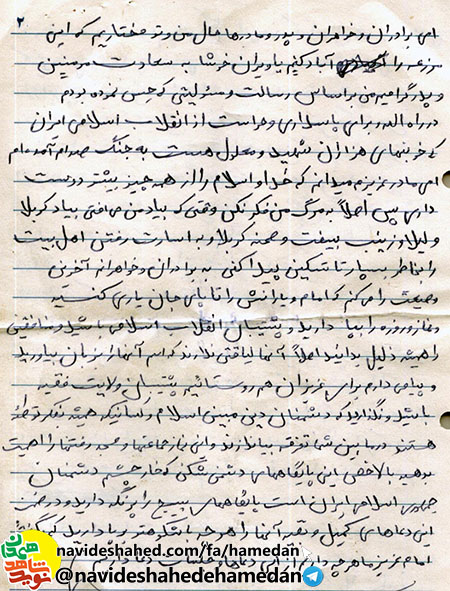 ۲
ای برادران و خواهران و پدر و مادرها حال من و تو مختاریم که این
مزرعه را آباد کنیم یا ویران خوشا به سعادت مومنین
و پدر گرامیم من بر اساس رسالت و مسئولیتی که حس نموده بودم
در راه الله و برای پاسداری و حراست از انقلاب اسلامی ایران
که خونبهای هزاران شهید و معلول هست به جنگ صدام آمده‌ام
ای مادر عزیزم میدانم که خدا و اسلام را از همه چیز بیشتر دوست
داری پس اصلاً به مرگ من فکر نکن وقتی که بیاد من می‌افتی بیاد کربلا
و لیلا و زینب بیفت و صحنه کربلا و به اسارت رفتن اهل بیت
را بخاطر بسپار تا تسکین پیدا کنی به برادران و خواهرانم آخرین
وصیت را می‌کنم که امام و یارانش را تا پای جان یاری کنید
و نماز و روزه را بپا دارید و پشتیبان انقلاب اسلامی باشید و منافقین
را همیشه ذلیل بدانید اصلاً آنها لیاقتی ندارند که اسم آنها را بزبان بیاورید
و پیامی دارم برای عزیزان هم روستائیم پشتیبان ولایت فقیه
باشید و نگذارید که دشمنان دین مبین اسلام و کسانیکه همیشه بفکر توطئه
هستند در ما بین شما تفرقه بیاندازند و این نماز جماعتها و مسجد رفتنها را اهمیت
بدهید بالاخص این پایگاههای دشمن شکن که خار چشم دشمنان
جمهوری اسلامی ایران است پایگاههای بسیج را پر نگه دارید و در ضمن
این دعاهای کمیل و ندبه آنها را هر چه باشکوهتر بپا دارید که بگفته
امام عزیز ما هر چه داریم از این دعاها و جلسات دعا داریم
navideshahed.com/fa/hamedan
@navideshahedehamedan
نوید شاهد
همدان